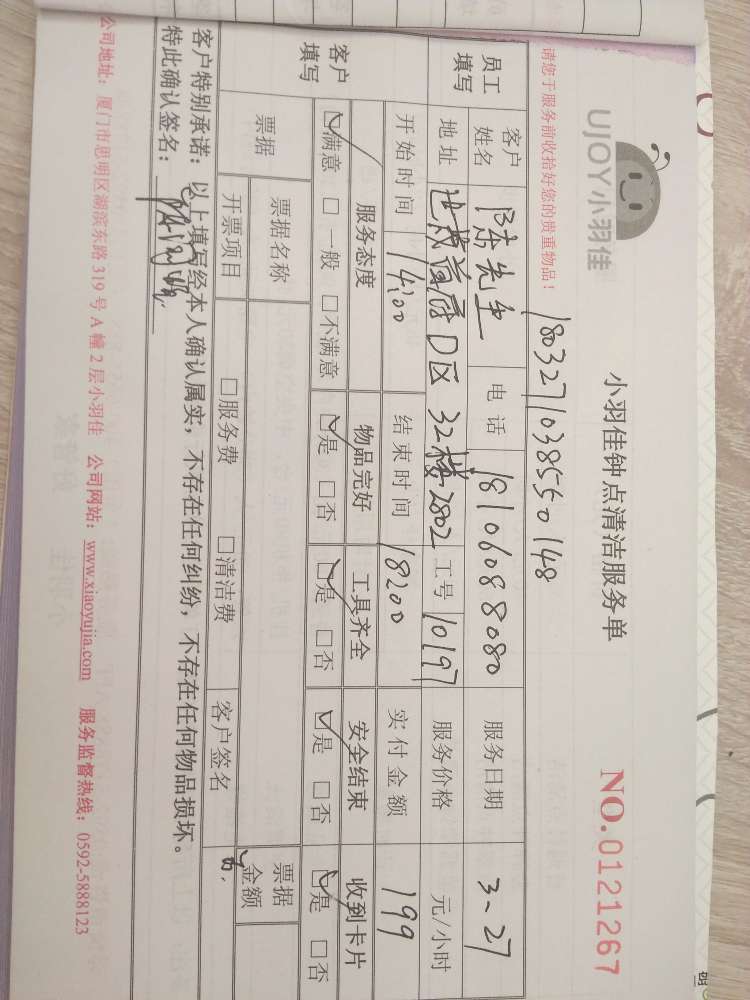 UJOY小羽佳
小羽佳钟点清洁服务单
NO.0121267
请您于服务前收拾好您的贵重物品！
1803271038550148
员工填写 客户姓名 陈先生 电话 18106088080 服务日期 3-27
地址 D区 32楼2802 工号 10197 服务价格 元/小时
客户填写 开始时间 14:00 结束时间 18:00 实付金额 199
服务态度 物品完好 工具齐全 安全结束 收到卡片
☑满意 □一般 □不满意 ☑是 □否 ☑是 □否 ☑是 □否 ☑是 □否
票据 票据名称 票据金额
开票项目 □服务费 □清洁费 客户签名
客户特别承诺：以上填写经本人确认属实，不存在任何纠纷，不存在任何物品损坏。
特此确认签名：
公司地址：厦门市思明区湖滨东路319号A幢2层小羽佳 公司网站：www.xiaoyujia.com 服务监督热线：0592-5888123